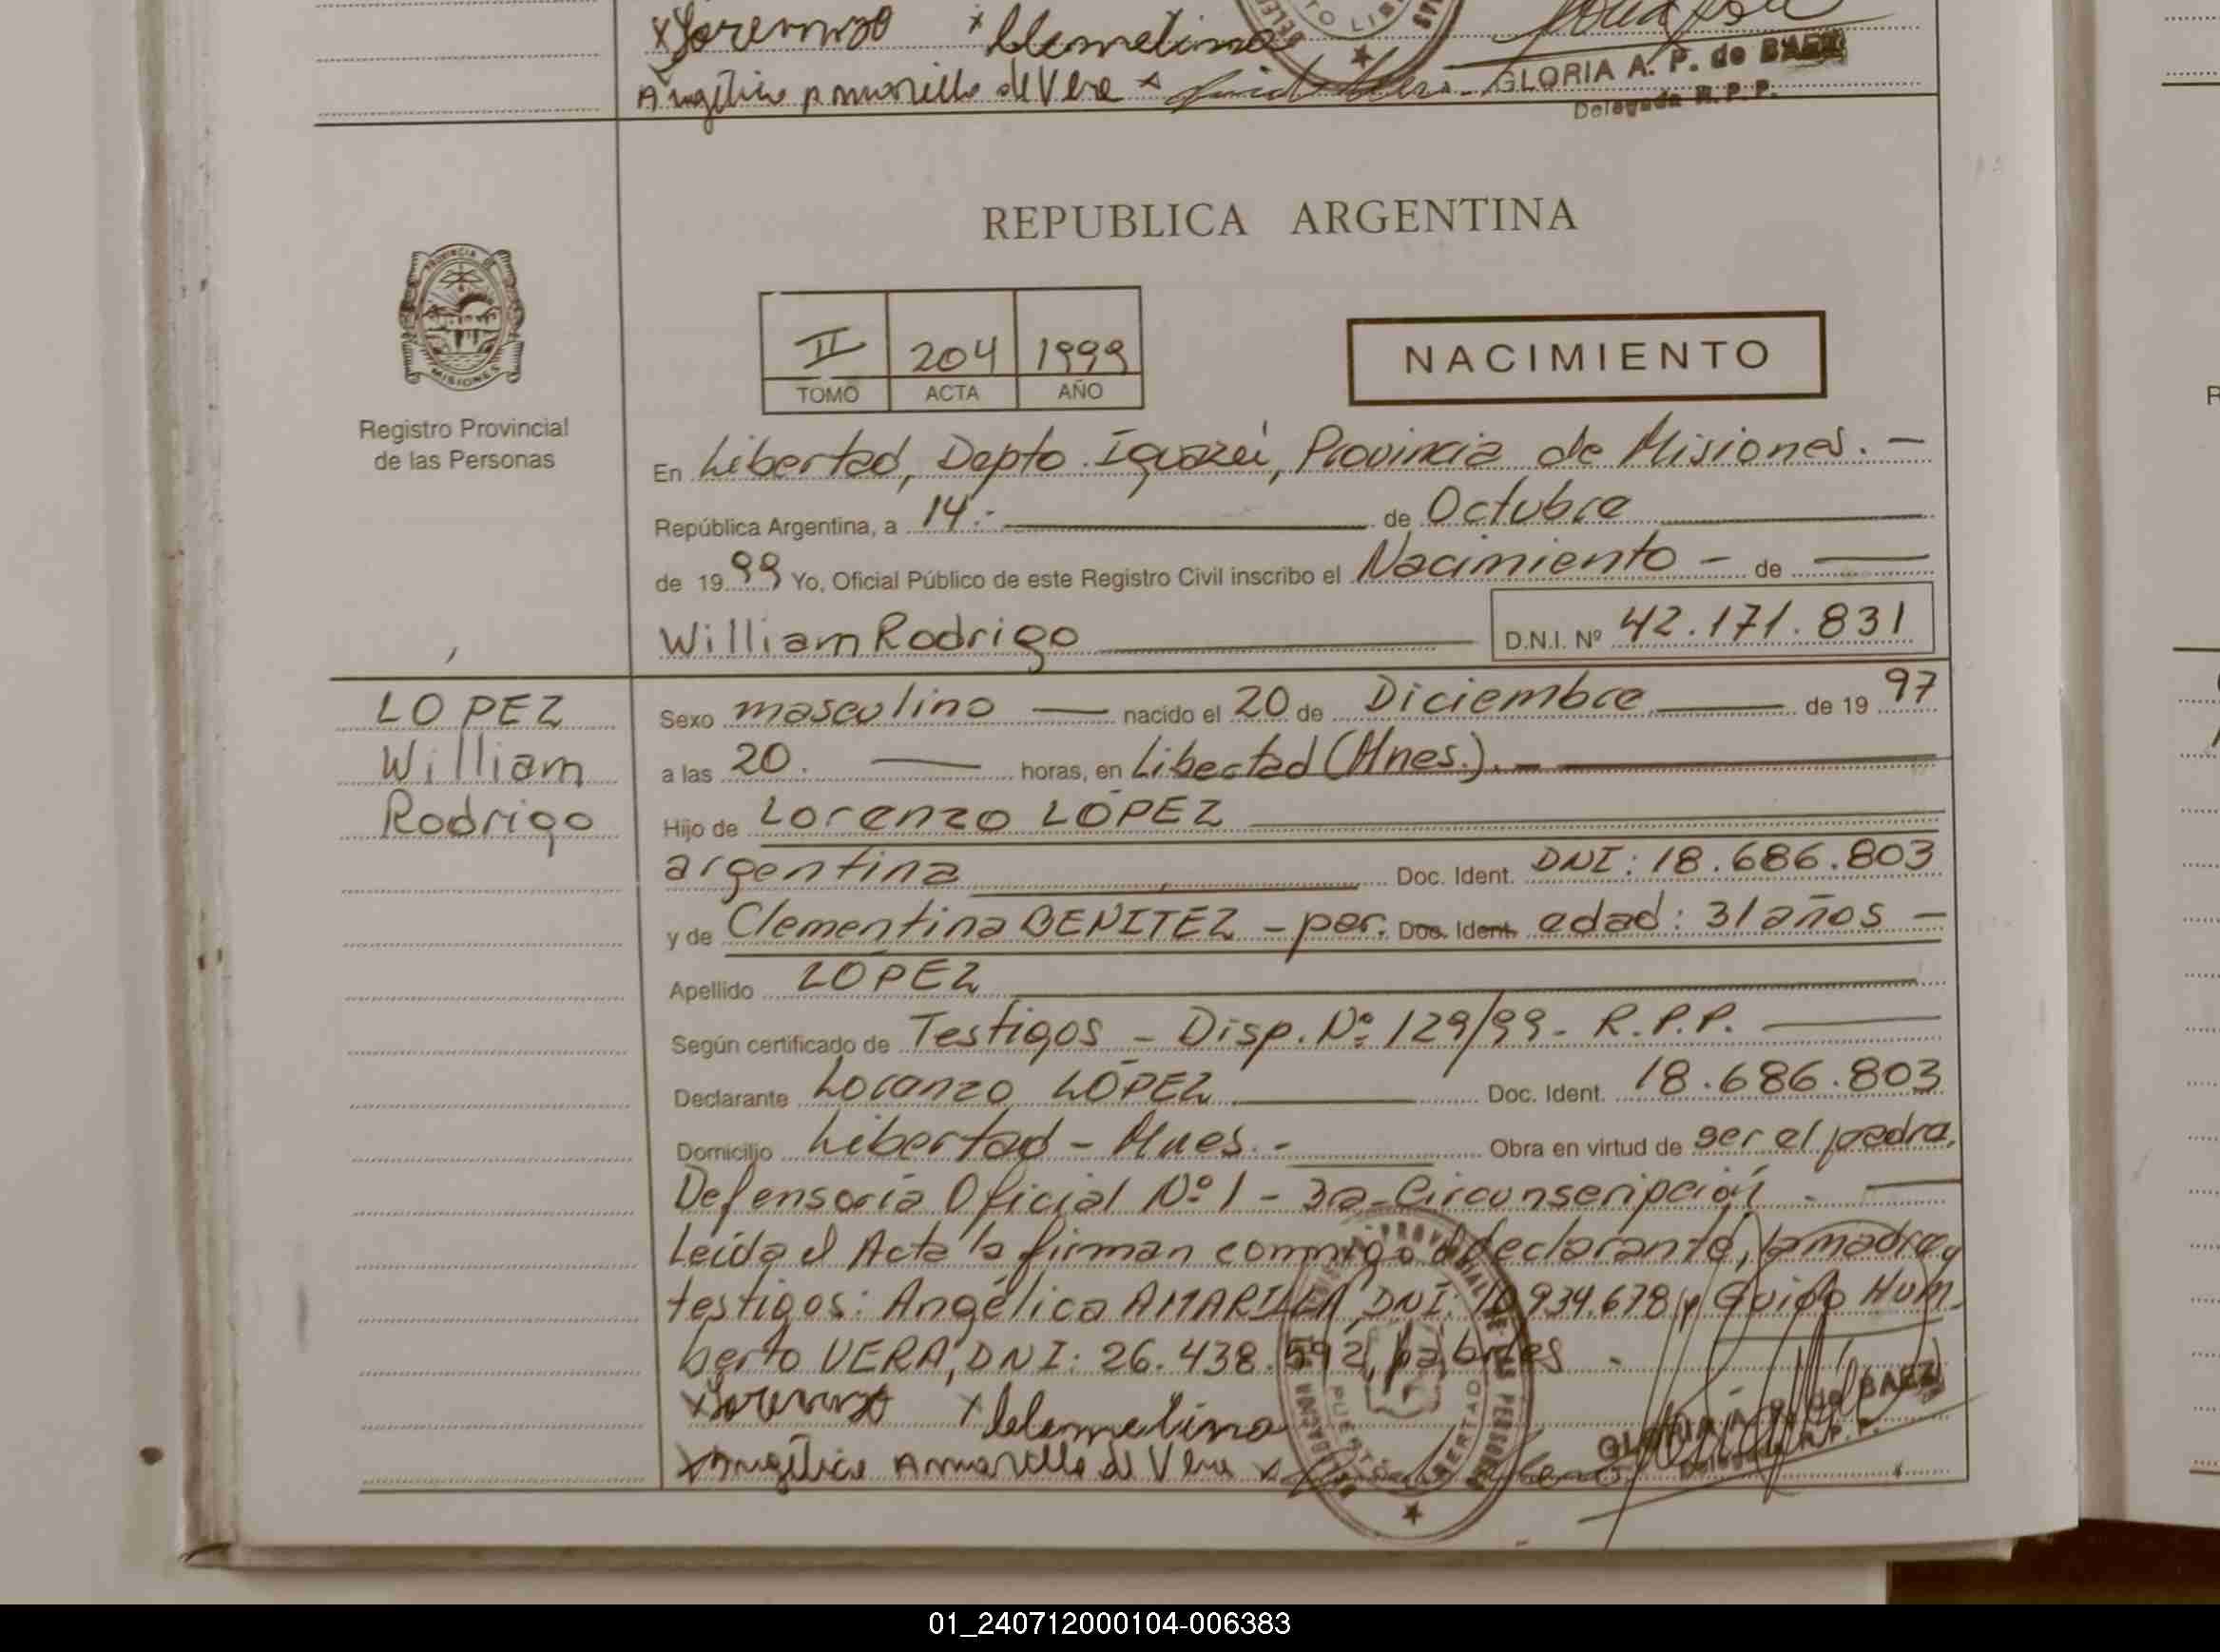 xLorenzo xClemetina
Angélica Amarilla de Vera x
GLORIA A. P. de BAEZ
Delegada R. P. P.
REPUBLICA ARGENTINA
PROVINCIA DE
MISIONES
II 204 1999
TOMO ACTA AÑO
NACIMIENTO
Registro Provincial
de las Personas
En Libertad, Depto. Iguazú, Provincia de Misiones. -
República Argentina, a 14.- de Octubre
de 1999 Yo, Oficial Público de este Registro Civil inscribo el Nacimiento - de
William Rodrigo D.N.I. Nº 42.171.831
LOPEZ
William
Rodrigo
Sexo masculino nacido el 20 de Diciembre de 1997
a las 20. horas, en Libertad (Mnes.). -
Hijo de Lorenzo LÓPEZ
argentina Doc. Ident. DNI: 18.686.803
y de Clementina BENITEZ - par. Doc. Ident. edad: 31 años -
Apellido LÓPEZ
Según certificado de Testigos - Disp. Nº: 129/99 - R.P.P.
Declarante Lorenzo LÓPEZ Doc. Ident. 18.686.803
Domicilio Libertad - Mnes. - Obra en virtud de ser el padre.
Defensoría Oficial Nº 1 - 3a. Circunscripción -
Leída el Acta la firman conmigo el declarante, la madre y
testigos: Angélica AMARILLA, DNI: 10.934.678 y Guido Hum
berto VERA, DNI: 26.438.592, hábiles -
xLorenzo xClemetina
xAngélica Amarilla de Vera x
PUERTO LIBERTAD
GLORIA A. P. de BAEZ
Delegada R. P. P.
01_240712000104-006383